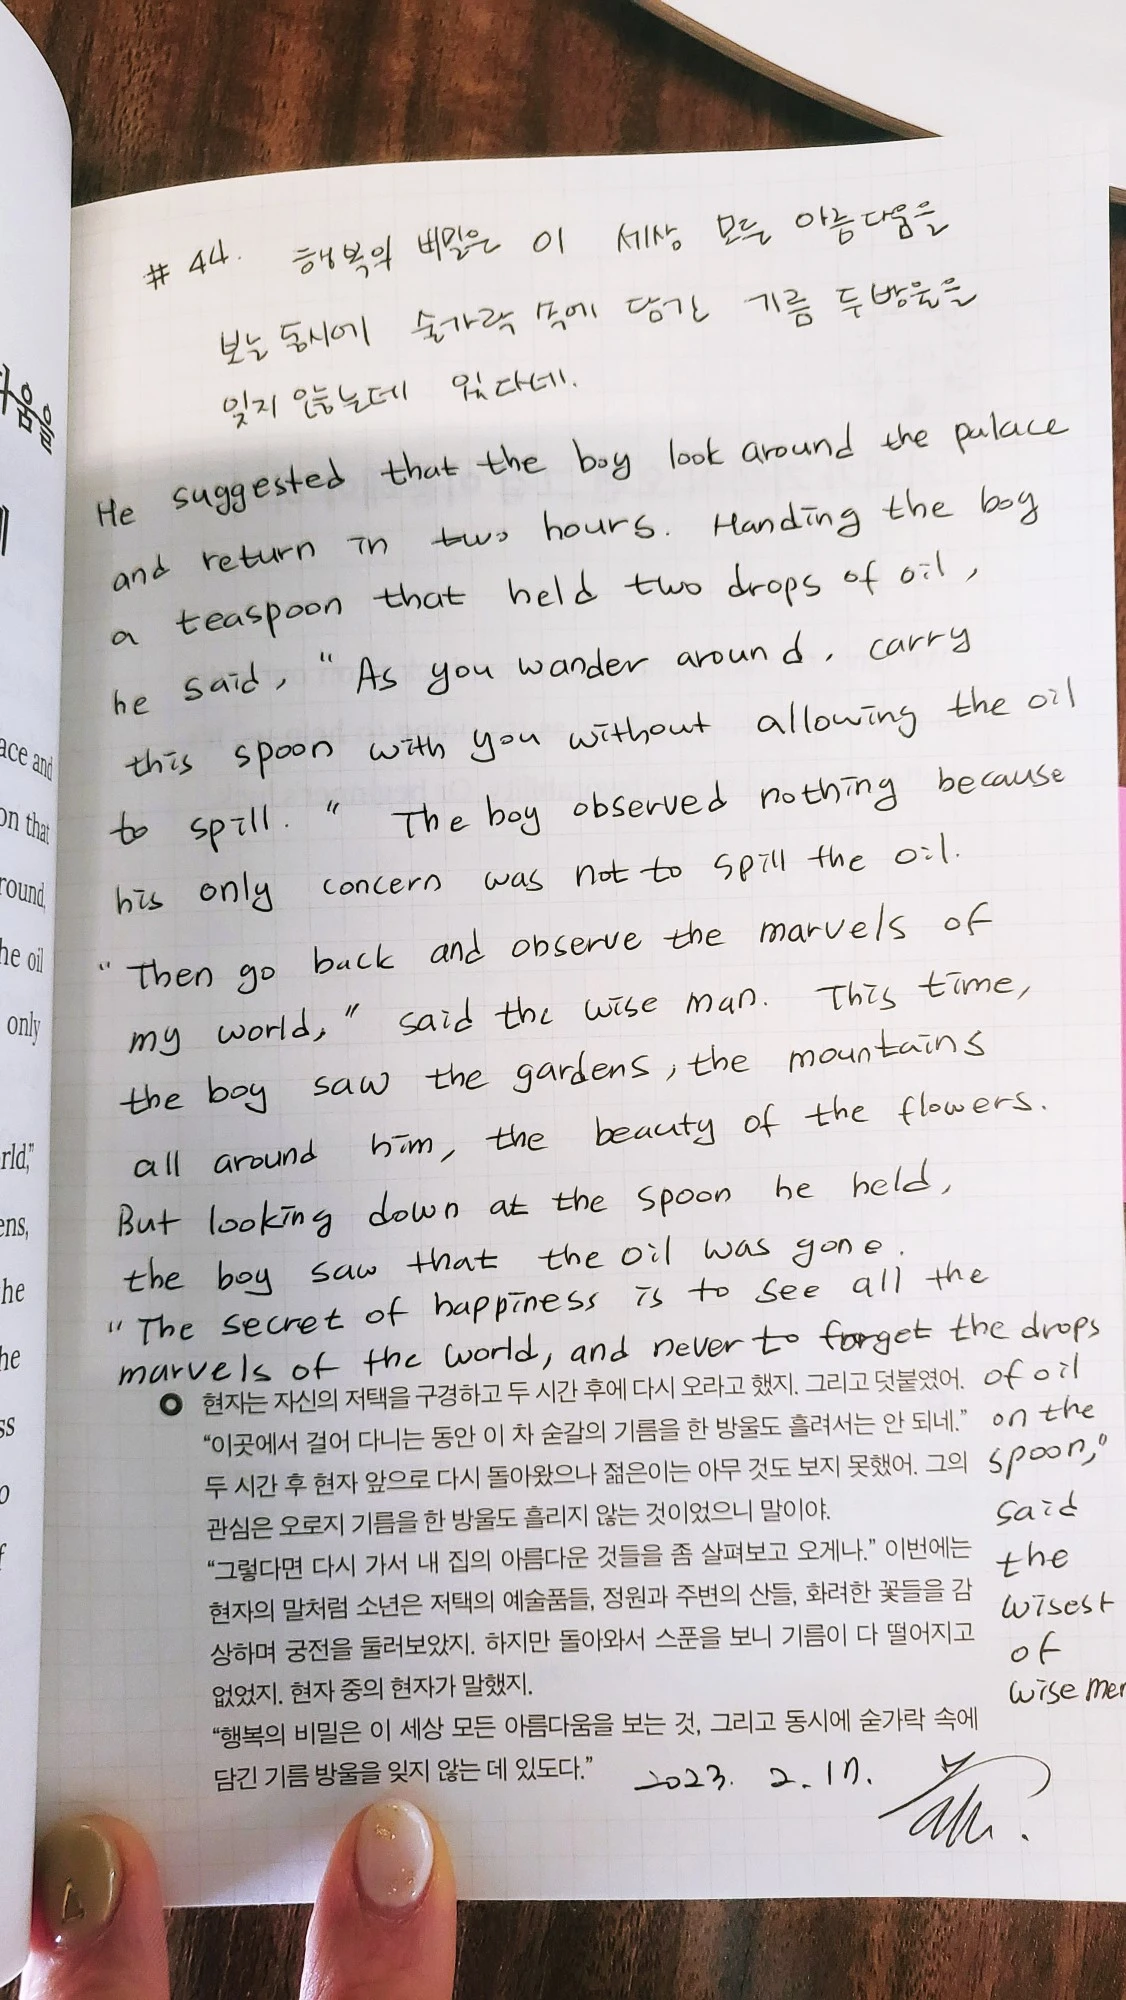 # 44. 행복의 비밀은 이 세상 모든 아름다움을
보는 동시에 숟가락 속에 담긴 기름 두 방울을
잊지 않는데 있다네.
He suggested that the boy look around the palace
and return in two hours. Handing the boy
a teaspoon that held two drops of oil,
he said, "As you wander around, carry
this spoon with you without allowing the oil
to spill." The boy observed nothing because
his only concern was not to spill the oil.
"Then go back and observe the marvels of
my world," said the wise man. This time,
the boy saw the gardens, the mountains
all around him, the beauty of the flowers.
But looking down at the spoon he held,
the boy saw that the oil was gone.
"The secret of happiness is to see all the
marvels of the world, and never to forget the drops
of oil
on the
spoon,"
said
the
wisest
of
wise men
현자는 자신의 저택을 구경하고 두 시간 후에 다시 오라고 했지. 그리고 덧붙였어.
"이곳에서 걸어 다니는 동안 이 차 숟갈의 기름을 한 방울도 흘려서는 안 되네."
두 시간 후 현자 앞으로 다시 돌아왔으나 젊은이는 아무 것도 보지 못했어. 그의
관심은 오로지 기름을 한 방울도 흘리지 않는 것이었으니 말이야.
"그렇다면 다시 가서 내 집의 아름다운 것들을 좀 살펴보고 오게나." 이번에는
현자의 말처럼 소년은 저택의 예술품들, 정원과 주변의 산들, 화려한 꽃들을 감
상하며 궁전을 둘러보았지. 하지만 돌아와서 스푼을 보니 기름이 다 떨어지고
없었지. 현자 중의 현자가 말했지.
"행복의 비밀은 이 세상 모든 아름다움을 보는 것, 그리고 동시에 숟가락 속에
담긴 기름 방울을 잊지 않는 데 있도다."
2023. 2. 17.
다움을
ace and
on that
round,
he oil
only
rld,"
ens,
he
he
ss
o
f